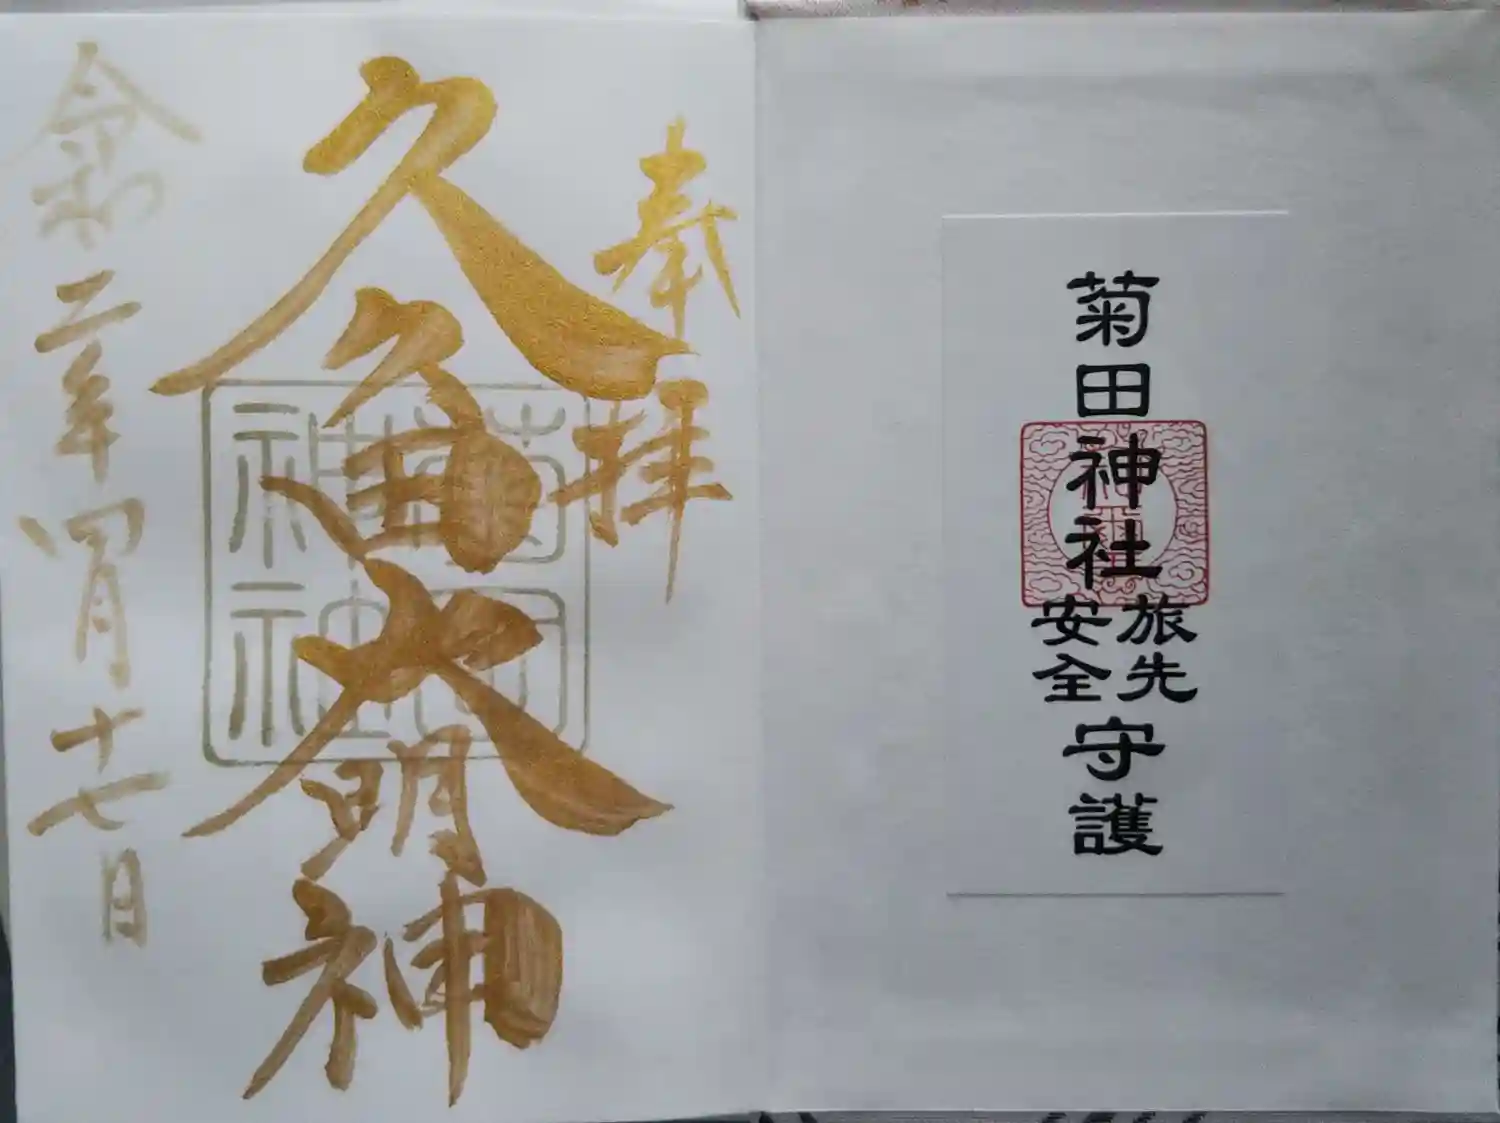 菊田神社旅先安全守護
奉拝
久久田大明神
菊田
神社
令和二年四月十七日